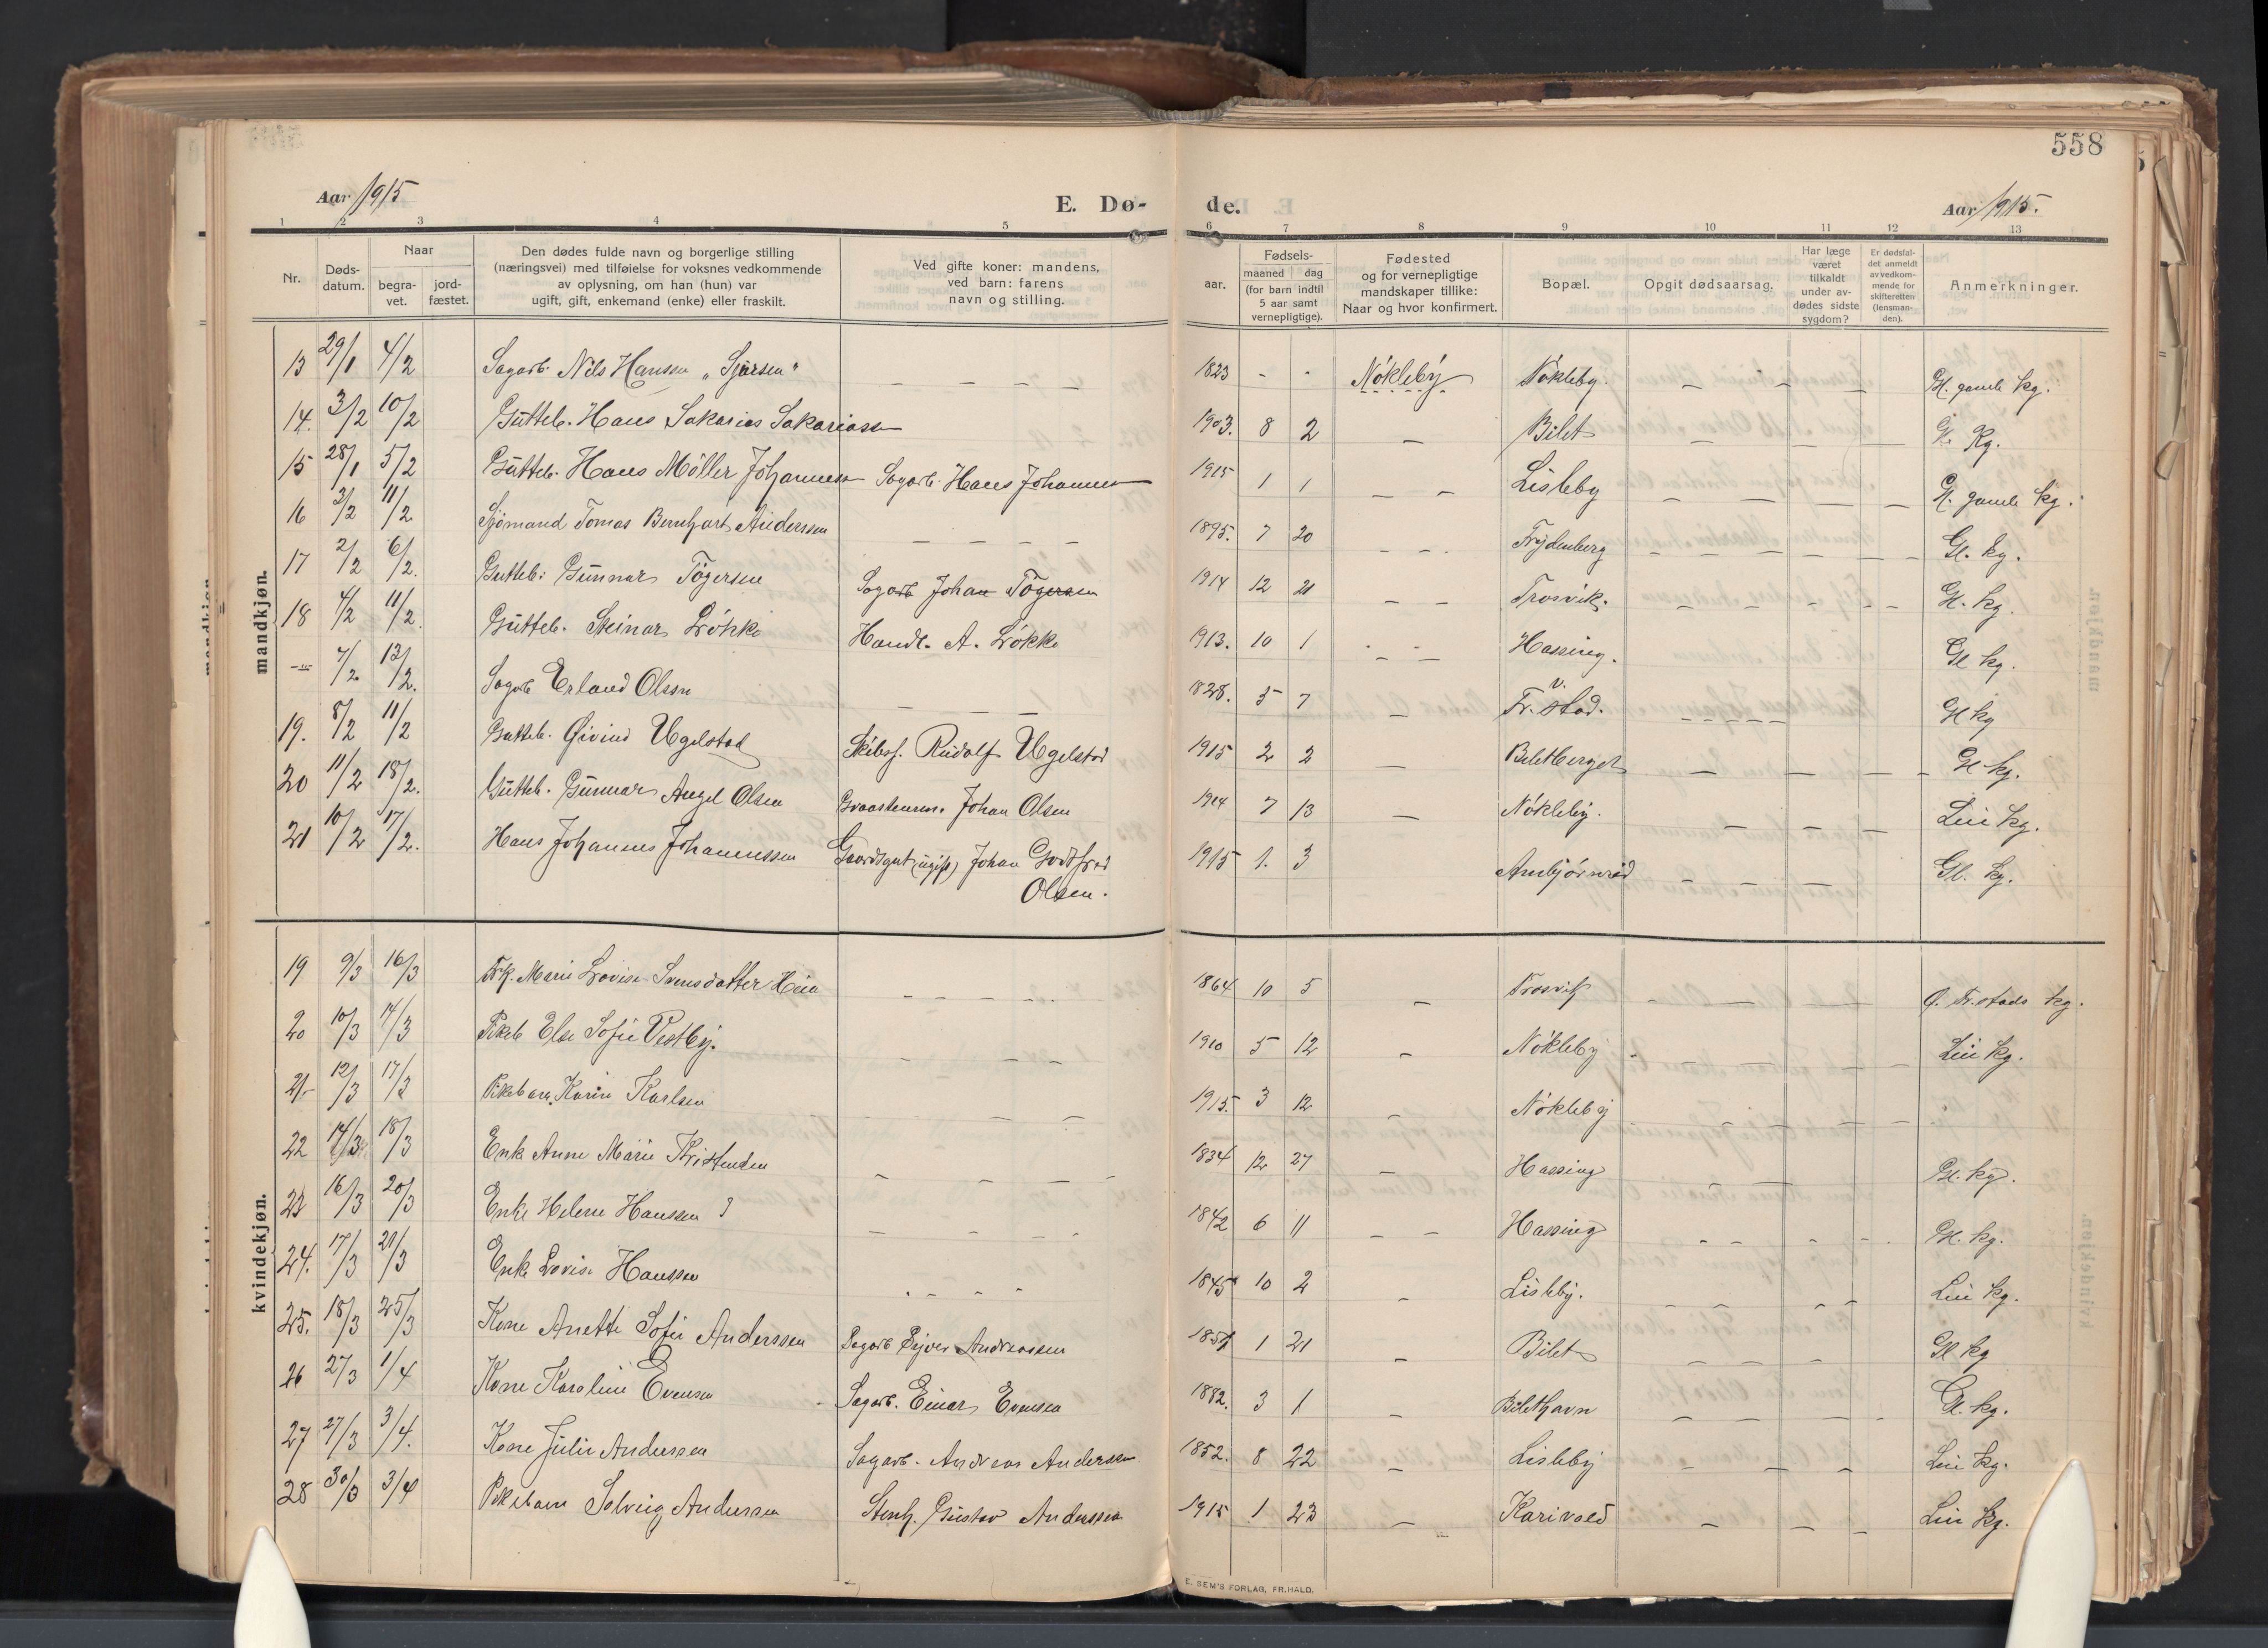 558
Aar 1915
E. Dø-
de.
Aar 1915.
1 2 3 4 5 6 7 8 9 10 11 12 13
Nr.
Døds-
datum.
Naar
begra-
vet.
jord-
fæstet.
Den dødes fulde navn og borgerlige stilling
(næringsvei) med tilføielse for voksnes vedkommende
av oplysning, om han (hun) var
ugift, gift, enkemand (enke) eller fraskilt.
Ved gifte koner: mandens,
ved barn: farens
navn og stilling.
aar.
Fødsels-
maaned dag
(for barn indtil
5 aar samt
vernepligtige).
Fødested
og for vernepligtige
mandskaper tillike:
Naar og hvor konfirmert.
Bopæl.
Opgit dødsaarsag.
Har læge
været
tilkaldt
under av-
dødes sidste
sygdom?
Er dødsfal-
det anmeldt
av vedkom-
mende for
skifteretten
(lensman-
den).
Anmerkninger.
mandkjøn.
13 29/1 4/2 Sagarb. Nils Hansen " — — — — 1823 - - Nökleby Nökleby. — — — Gl. gamle kg.
14. 3/2 10/2 Gutteb. Hans Sakarias Sakariassen 1903. 8 2 — Bilet — — — Kg.
15 28/1 5/2 Gutteb. Hans Möller Johannessen Sagarb. Hans Johannessen 1915 1 1 — — Lisleby — — — — Gl. gamle kg.
16 3/2 11/2 Sjömand Tomas Bernhart Anderssen — — — — 1895. 7 20 — — Frydenberg — — — — Gl. kg.
17 2/2 6/2. Gutteb. Gunnar Tögersen Sagarb Johan Tögersen 1914 12 21 — — Trosvik. — — — — Gl. kg.
18 4/2 11/2. Gutteb. Steinar Lökke Handl. A. Lökke 1913. 10 1 — — Hassing. Gl kg.
7/2 13/2. Sagarb Erland Olsen — — — 1828. 5 7 — Fr. v. stad. — — — — Gl kg
19. 8/2 11/2 Gutteb. Øivind Ugelstad Skibsf. Rudolf Ugelstad 1915 2 2 — Biletberget — — — — Gl kg.
20 11/2 18/2. Gutteb. Gunnar Angel Olsen Graastenm. Johan Olsen 1914 7 13 — Nökleby. — — — Lu kg.
21 10/2 17/2. Hans Johannes Johannessen Gaardsgut (ugift) Johan Godtfred
Olsen. 1915 1. 3 Ambjörnröd — — — Gl. kg.
kvindekjøn.
19 9/3 16/3 Frk. Marie Lovise Svensdatter — — — — 1864 10 5 — Trosvik — — — Ö. Fr.stads kg.
20 10/3 14/3 Pikeb Else Sofie Vestby. — — — — 1910 5 12 — Nökleby — — — Lu kg.
21- 12/3 17/3 Pikebarn Karin Karlsen — — — 1915. 3 12 — Nökleby — — —
22 14/3 18/3 Enke Anne Marie Kristensen — — — — 1834 12 27 — Hassing Gl. kg.
23 16/3 20/3 Enke Helene Hanssen — — — — 1842 6 11 — — Hassing — — — — Gl. kg.
24. 17/3 21/3 Enke Lovise Hanssen — — — 1845 10 2 — Lisleby. — — — — Lu kg.
25. 18/3 25/3 Kone Anette Sofie Anderssen Sagarb Andreassen 1851 1 21 — Bilet — — — Gl kg
26 27/3 1/4 Kone Karoline Evensen Sagarb. Einar Evensen 1882. 3 1 — Bilethavn — — — — Gl. kg.
27 27/3 3/4. Kone Julie Andersen Sagarb. Andreas Andersen 1852. 8 22 — Lisleby — — — Lu kg.
28 30/3 3/4 Pikebarn Solveig Andersen Stenh. Gustav Anderssen 1915 1 23 — Karivold — — — Lu kg.
E. SEM'S FORLAG, FR.HALD.